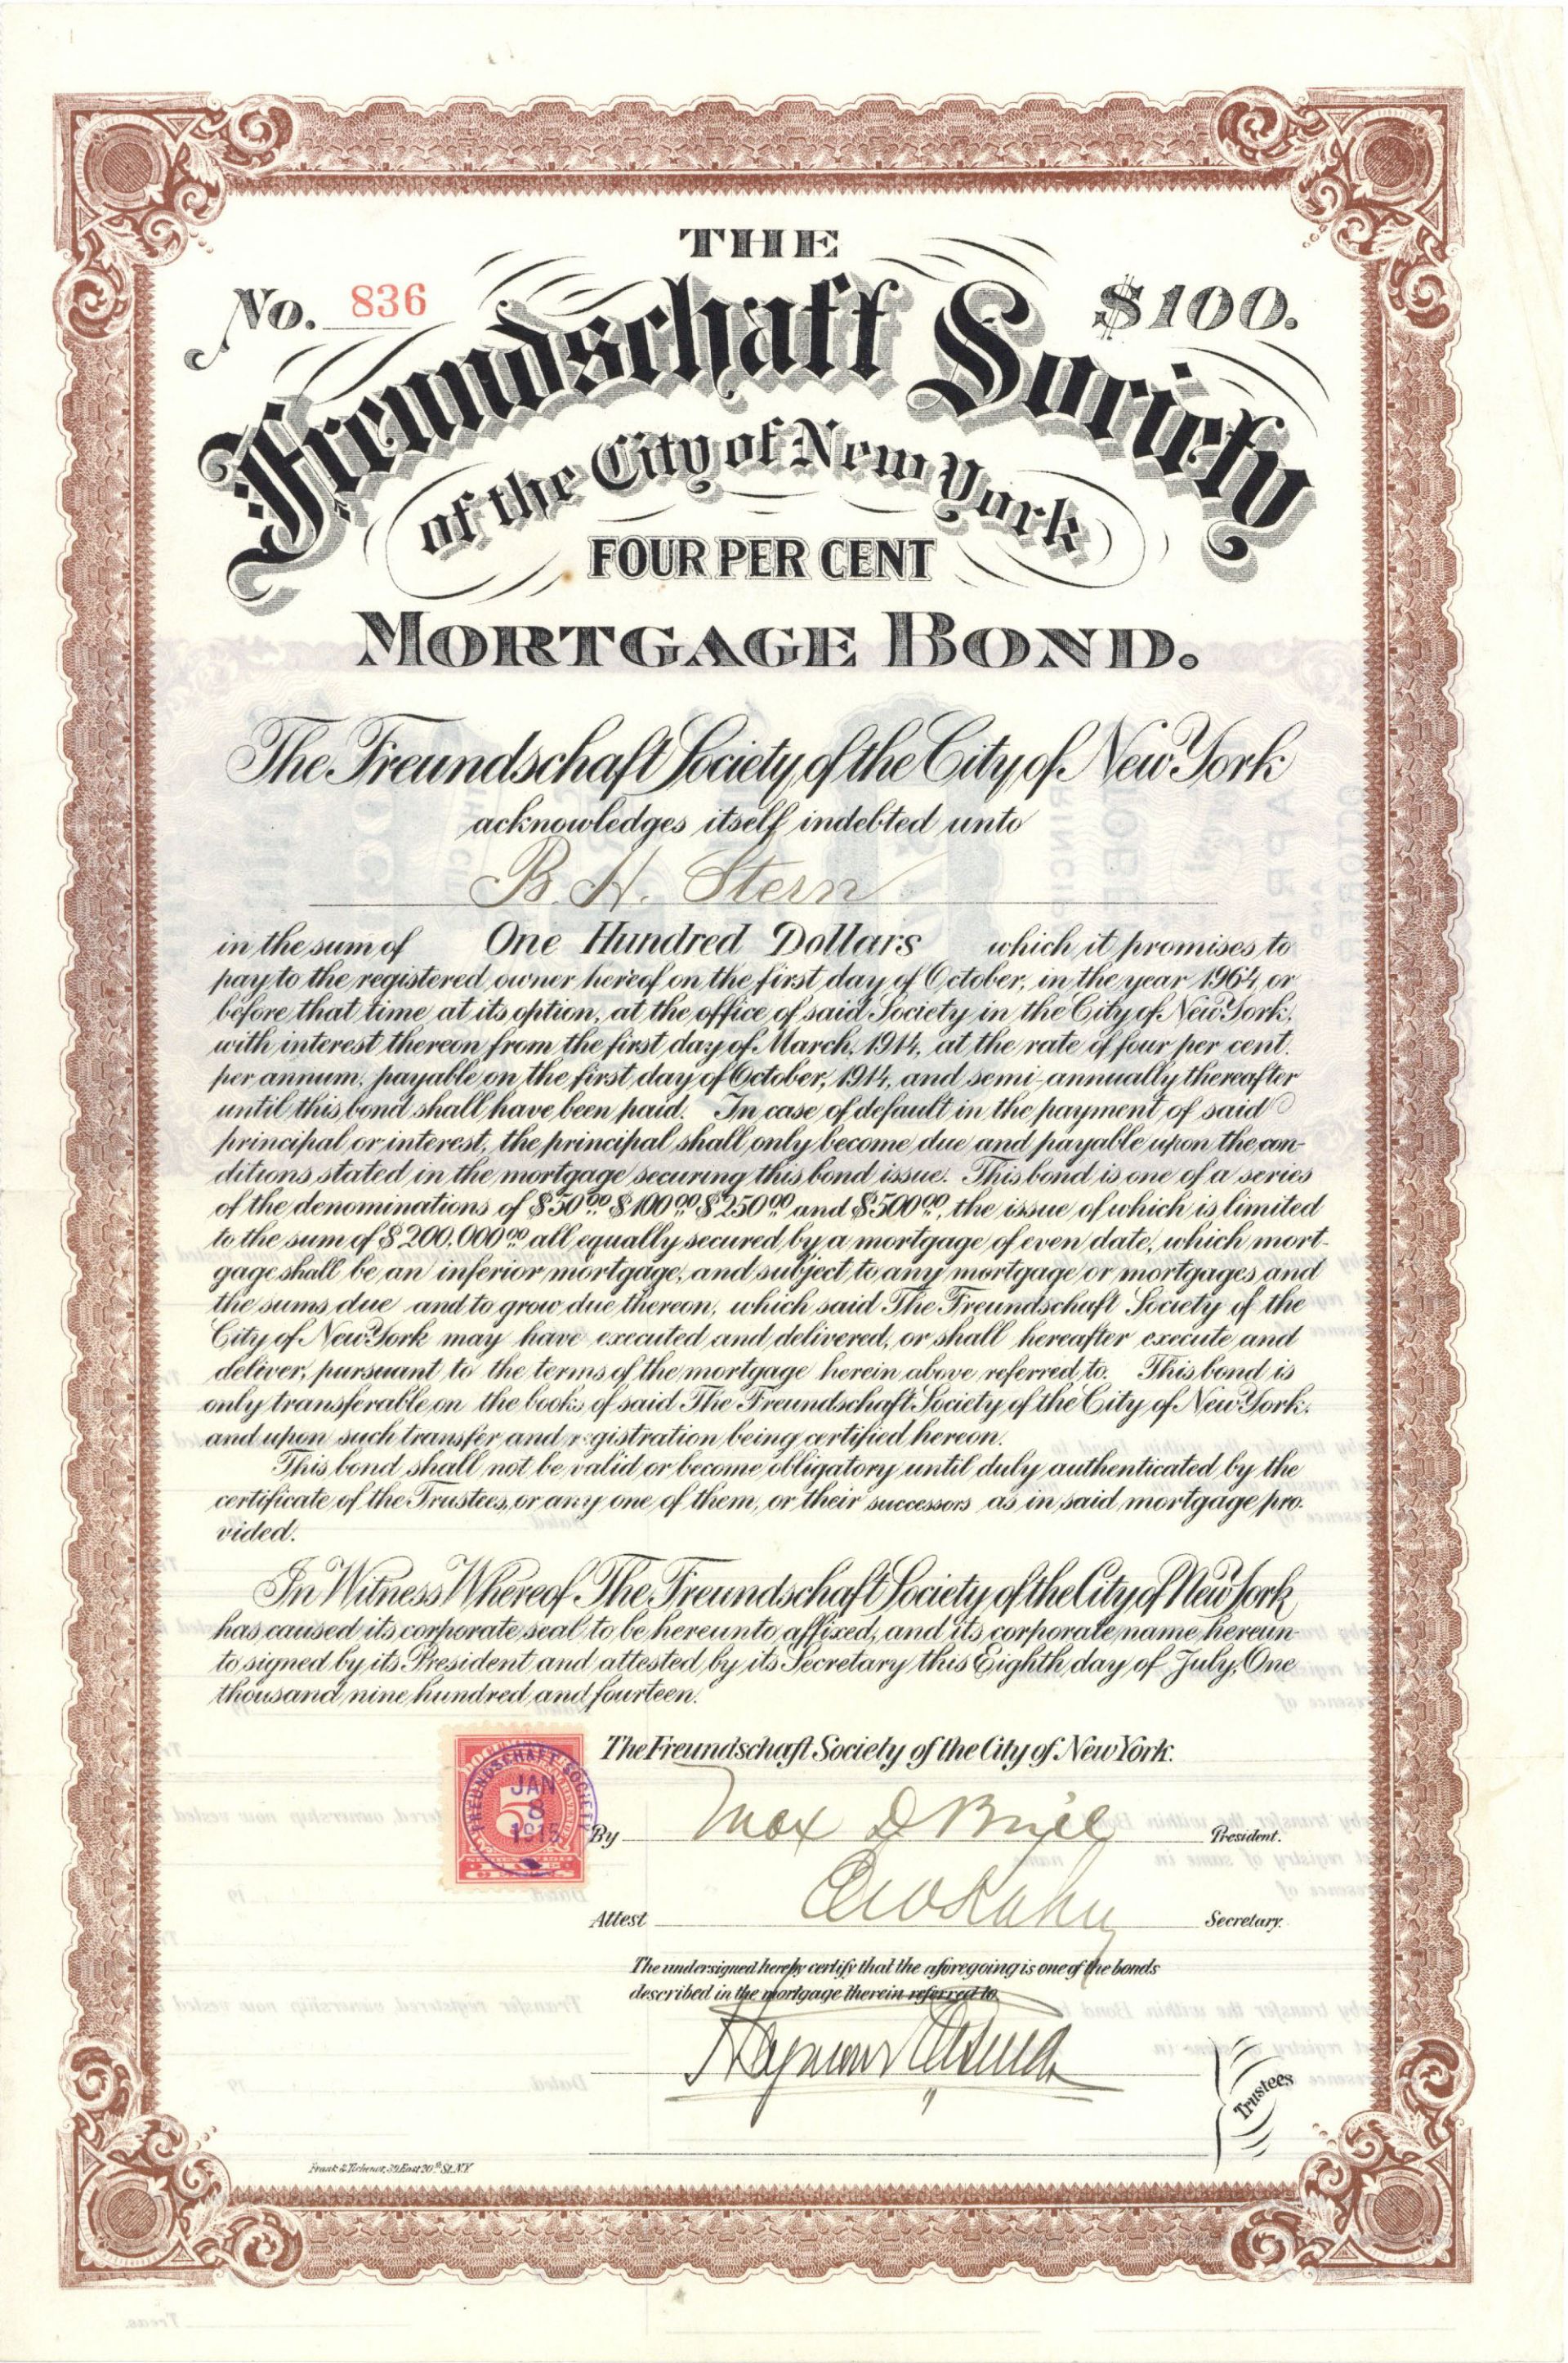 THE
No. 836
$100.
Freundschaft Society
of the City of New York
FOUR PER CENT
MORTGAGE BOND.
The Freundschaft Society of the City of New York
acknowledges itself indebted unto
B. H. Stern
in the sum of One Hundred Dollars which it promises to
pay to the registered owner hereof on the first day of October, in the year 1964, or
before that time at its option, at the office of said Society in the City of New York,
with interest thereon from the first day of March, 1914, at the rate of four per cent.
per annum, payable on the first day of October, 1914, and semi-annually thereafter
until this bond shall have been paid. In case of default in the payment of said
principal or interest, the principal shall only become due and payable upon the con-
ditions stated in the mortgage securing this bond issue. This bond is one of a series
of the denominations of $50.00 $100.00 $250.00 and $500.00, the issue of which is limited
to the sum of $200,000.00 all equally secured by a mortgage of even date, which mort-
gage shall be an inferior mortgage, and subject to any mortgage or mortgages and
the sums due and to grow due thereon, which said The Freundschaft Society of the
City of New York may have executed and delivered, or shall hereafter execute and
deliver, pursuant to the terms of the mortgage herein above referred to. This bond is
only transferable on the books of said The Freundschaft Society of the City of New York,
and upon such transfer and registration being certified hereon.
This bond shall not be valid or become obligatory until duly authenticated by the
certificate of the Trustees, or any one of them, or their successors as in said mortgage pro-
vided.
In Witness Whereof The Freundschaft Society of the City of New York
has caused its corporate seal to be hereunto affixed, and its corporate name hereun-
to signed by its President and attested by its Secretary this Eighth day of July, One
thousand nine hundred and fourteen.
The Freundschaft Society of the City of New York.
FREUNDSCHAFT SOCIETY
JAN
8
1915
5
By Max D Brill President.
Attest Secretary.
The undersigned hereby certify that the aforegoing is one of the bonds
described in the mortgage therein referred to
Trustees
39 East 20th St. N.Y.